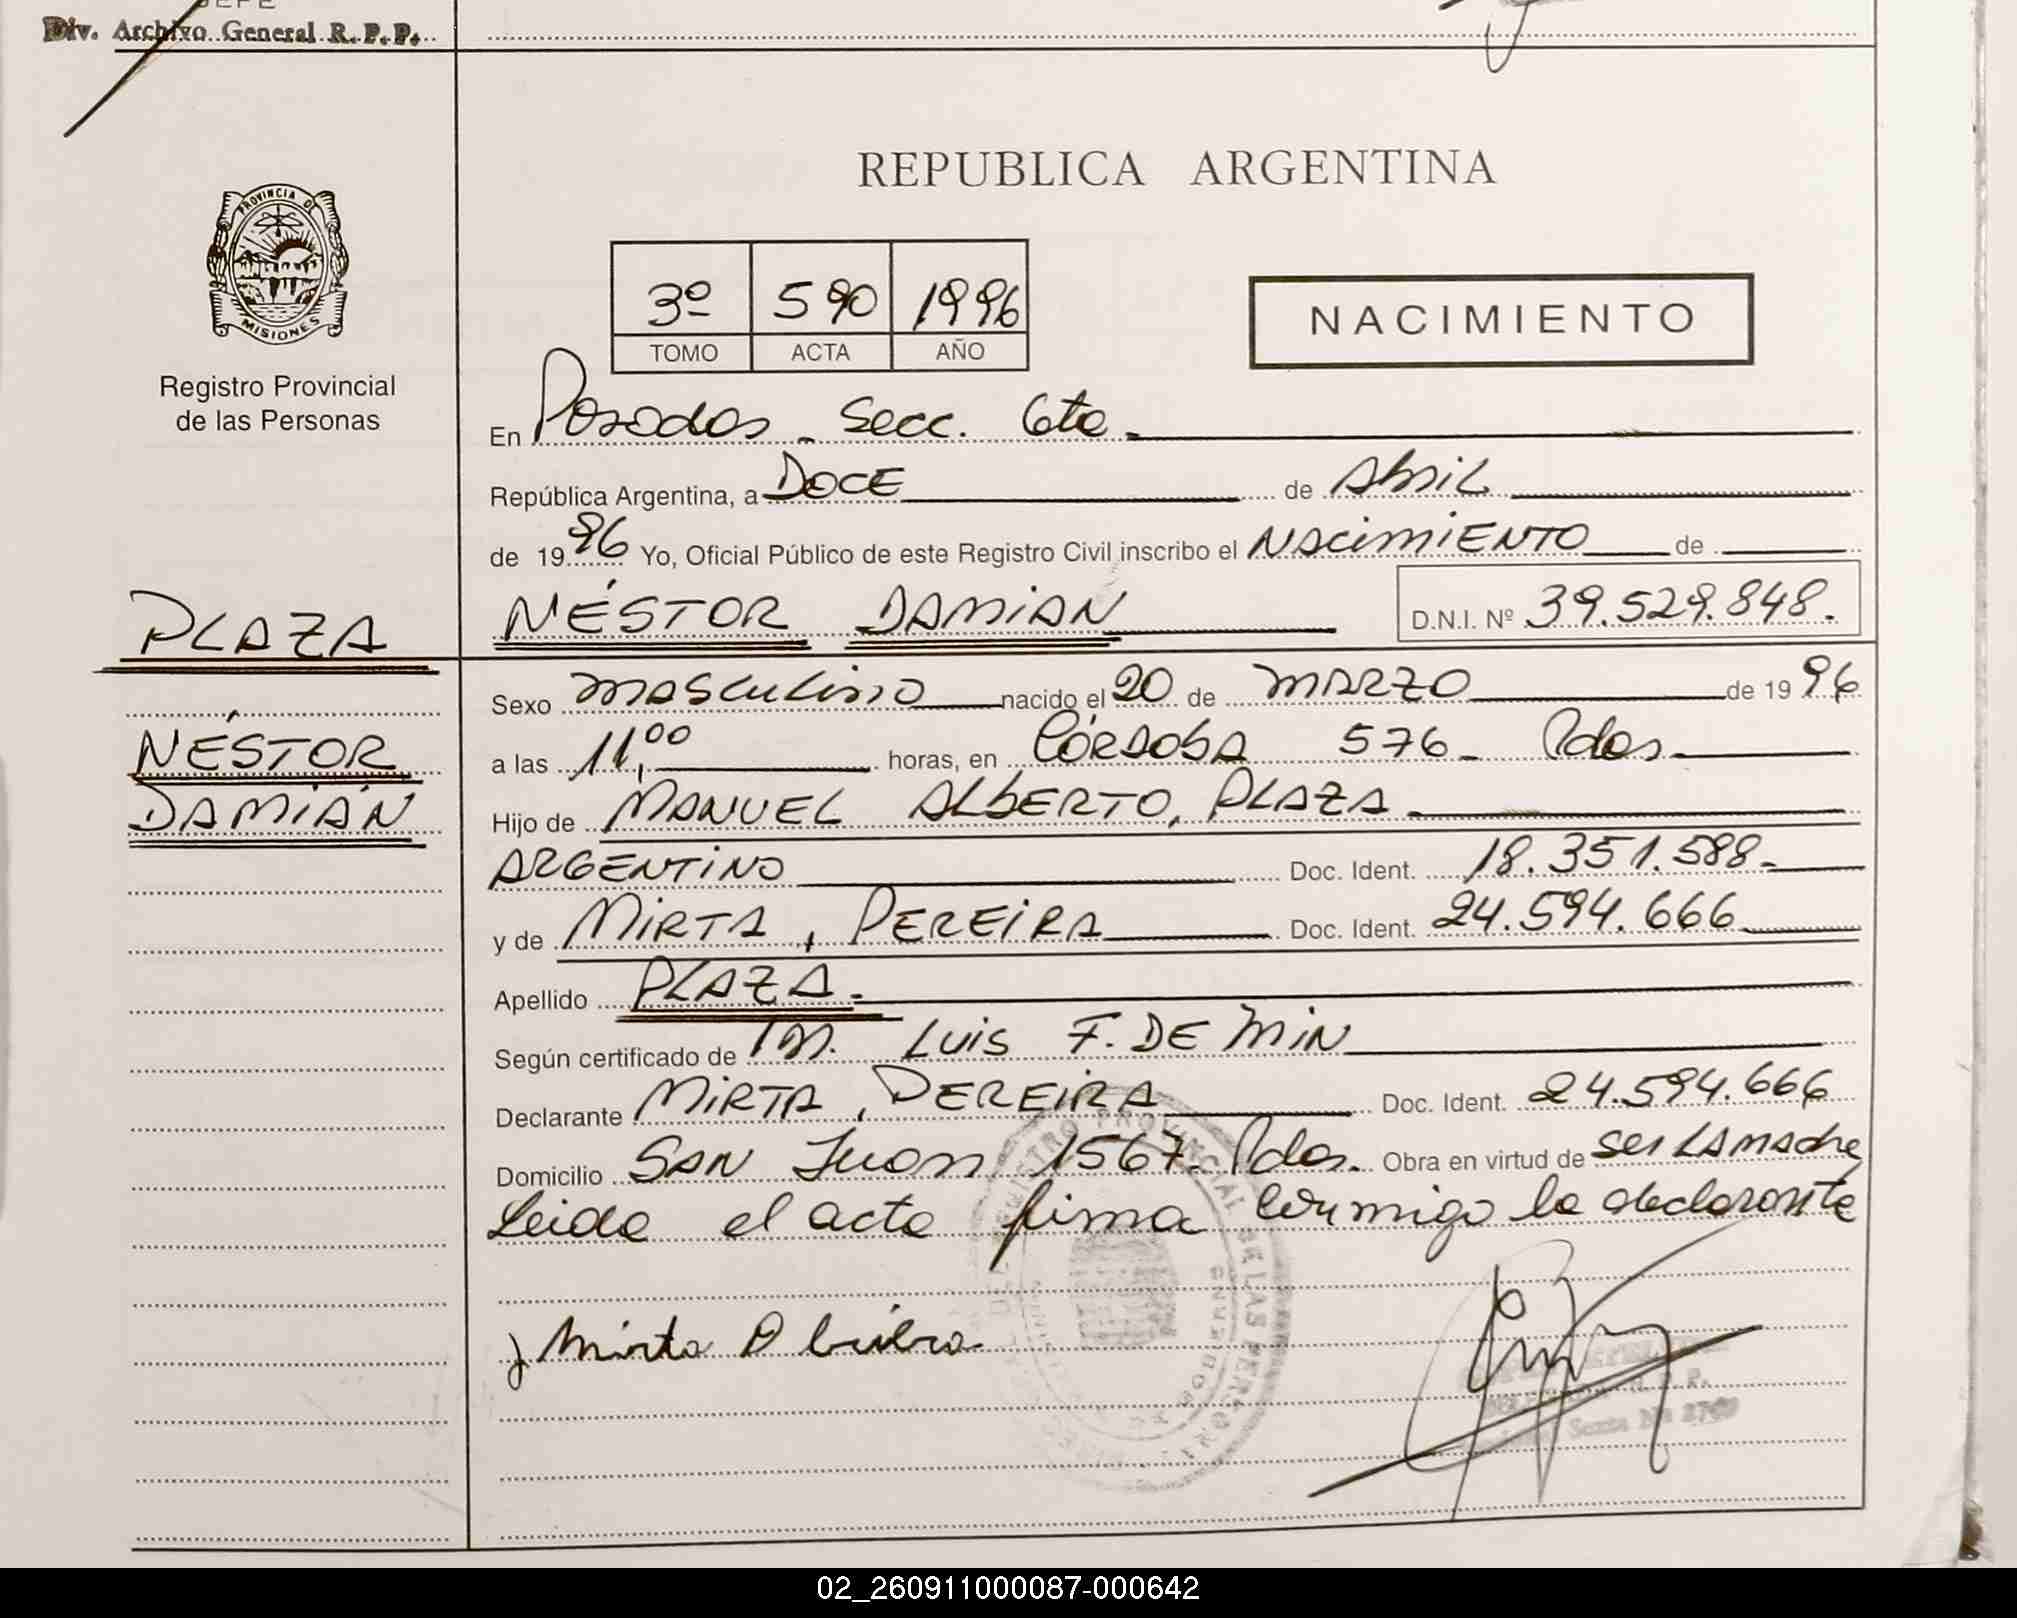 JEFE
Div. Archivo General R.P.P.
REPUBLICA ARGENTINA
PROVINCIA DE
MISIONES
Registro Provincial
de las Personas
3º 590 1996
TOMO ACTA AÑO
NACIMIENTO
En Posadas - Secc. 6ta -
República Argentina, a DOCE de Abril
de 1996 Yo, Oficial Público de este Registro Civil inscribo el NACIMIENTO de
NÉSTOR DAMIAN D.N.I. Nº 39.529.848.
PLAZA
NÉSTOR
DAMIÁN
Sexo masculino nacido el 20 de MARZO de 1996
a las 11,00 horas, en CÓRDOBA 576 - Pdas.
Hijo de MANUEL ALBERTO, PLAZA
ARGENTINO Doc. Ident. 18.351.588-
y de MIRTA, PEREIRA Doc. Ident. 24.594.666
Apellido PLAZA.
Según certificado de Tm. LUIS F. DE MIN
Declarante MIRTA, PEREIRA Doc. Ident. 24.594.666
Domicilio SAN Juan 1567- Pdas. Obra en virtud de ser LA madre
Leida el acta firma conmigo la declarante
REGISTRO PROVINCIAL DE LAS PERSONAS
Mirta
Sexta Nº 2709
02_260911000087-000642